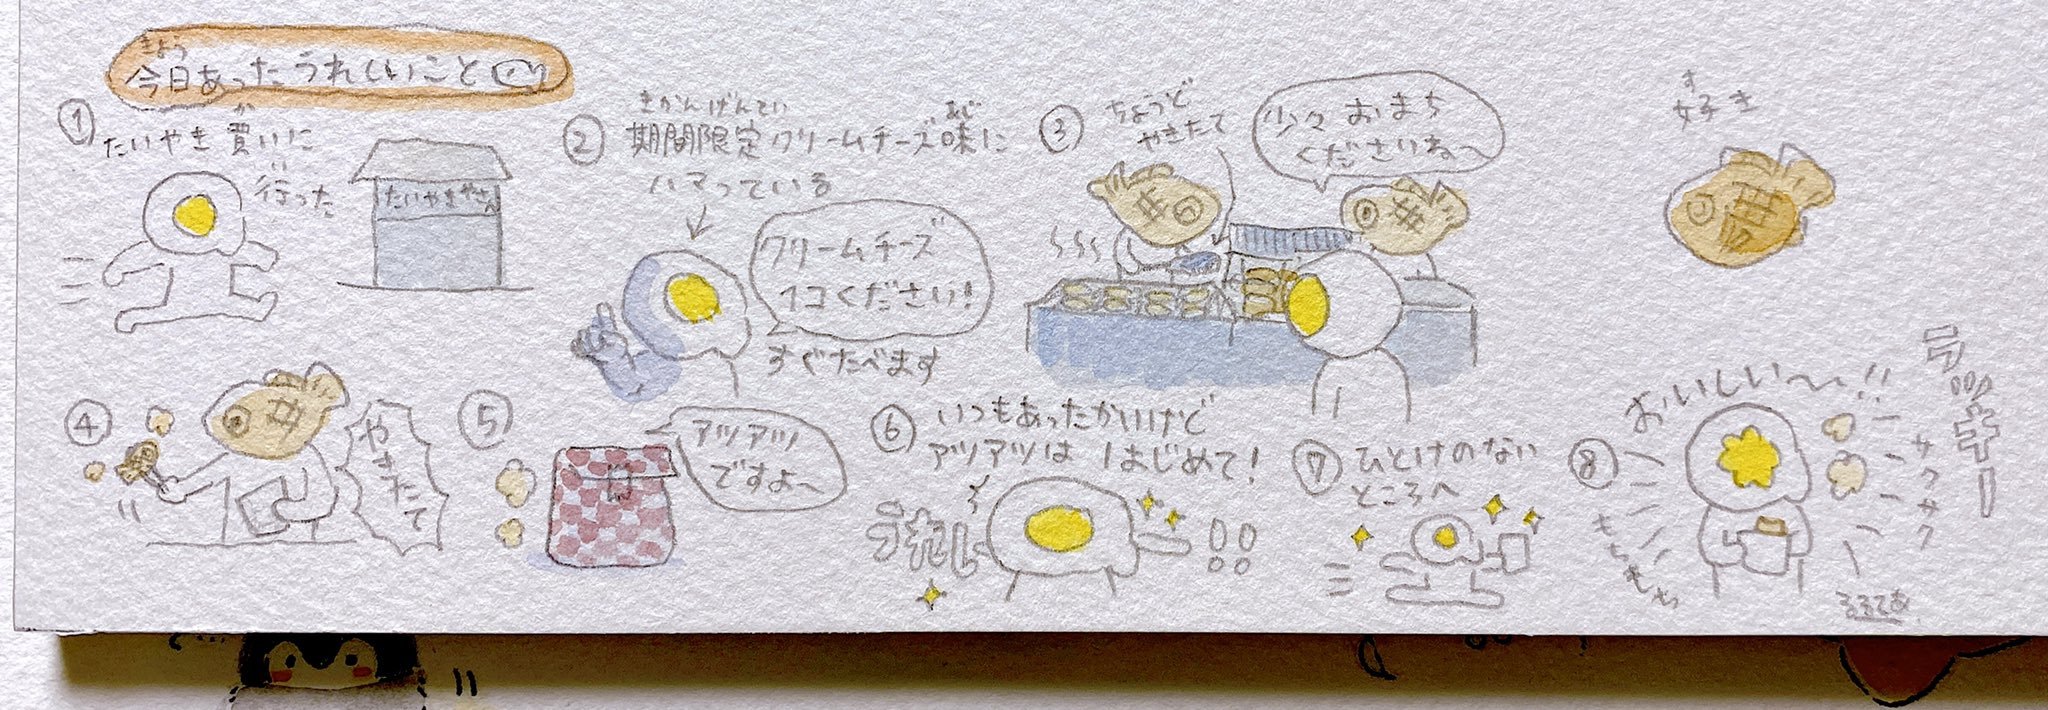 きょう
今日あったうれしいこと
①
たいやき買いに
か
行った
たいやきやさん
②
きかんげんてい
あじ
期間限定クリームチーズ味に
ハマっている
クリームチーズ
1コください!
すぐたべます
③
ちょうど
やきたて
少々おまち
くださいね〜
す
好き
④
やきたて
⑤
アツアツ
ですよ〜
⑥
いつもあったかいけど
アツアツははじめて!
!!
⑦
ひとけのない
ところへ
⑧
おいしい〜!!
サクサク
もちもち
ラッキー